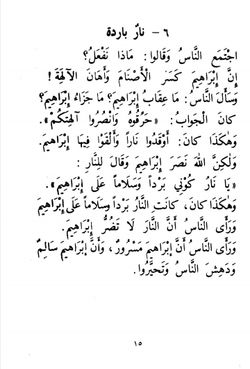 ٦ - نار باردة
اجْتَمَعَ النَّاسُ وَقَالُوا: مَاذَا نَفْعَلُ؟
إِنَّ إِبْرَاهِيمَ كَسَرَ الْأَصْنَامَ وَأَهَانَ الْآلِهَةَ!
وَسَأَلَ النَّاسُ: مَا عِقَابُ إِبْرَاهِيمَ؟ مَا جَزَاءُ إِبْرَاهِيمَ؟
كَانَ الْجَوَابُ: «حَرِّقُوهُ وَانْصُرُوا آلِهَتَكُمْ».
وَهٰكَذَا كَانَ: أَوْقَدُوا نَاراً وَأَلْقَوْا فِيهَا إِبْرَاهِيمَ.
وَلٰكِنَّ اللهَ نَصَرَ إِبْرَاهِيمَ وَقَالَ لِلنَّارِ:
«يَا نَارُ كُونِي بَرْداً وَسَلَاماً عَلَى إِبْرَاهِيمَ».
وَهٰكَذَا كَانَ، كَانَتِ النَّارُ بَرْداً وَسَلَاماً عَلَى إِبْرَاهِيمَ
وَرَأَى النَّاسُ أَنَّ النَّارَ لَا تَضُرُّ إِبْرَاهِيمَ.
وَرَأَى النَّاسُ أَنَّ إِبْرَاهِيمَ مَسْرُورٌ، وَأَنَّ إِبْرَاهِيمَ سَالِمٌ
وَدَهِشَ النَّاسُ وَتَحَيَّرُوا.
١٥